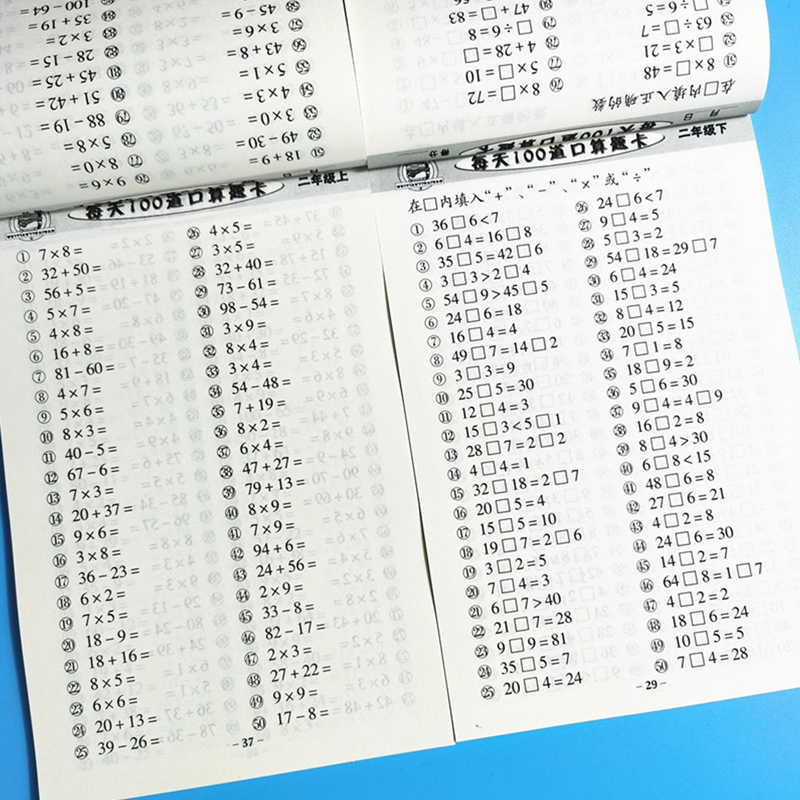 在□内填入正确的数
51 8×□=48
52 □×3=21
53 63÷□=7
76 8×□=72
77 5×□=10
□÷6=8
47+□=83
51 18+9=
52 49-30=
53 3×0=
54 4×3=
55 5×1=
56 43+8=
57 3×6=
58 45-9=
76 9×6=
77 8×0=
78 5×8=
79 88-19=
80 51+42=
81 45+25=
82 28-15=
83 3×2=
84 35+19=
100-64=
每天100道口算题卡 二年级上
① 7×8=
② 32+50=
③ 56+5=
④ 5×7=
⑤ 4×8=
⑥ 16+8=
⑦ 81-60=
⑧ 4×7=
⑨ 5×6=
⑩ 8×3=
⑪ 40-5=
⑫ 67-6=
⑬ 7×3=
⑭ 20+37=
⑮ 9×6=
⑯ 3×8=
⑰ 36-23=
⑱ 6×2=
⑲ 7×5=
⑳ 18-9=
㉑ 18+16=
㉒ 8×5=
㉓ 6×6=
㉔ 20+13=
㉕ 39-26=
㉖ 4×5=
㉗ 3×5=
㉘ 32+40=
㉙ 73-61=
㉚ 98-54=
㉛ 3×9=
㉜ 8×4=
㉝ 3×4=
㉞ 54-48=
㉟ 7+19=
㊱ 8×2=
㊲ 6×4=
㊳ 47+27=
㊴ 79+13=
㊵ 8×9=
㊶ 7×9=
㊷ 94+6=
㊸ 24+56=
㊹ 2×9=
㊺ 33-8=
㊻ 82-17=
㊼ 2×3=
㊽ 27+22=
㊾ 9×9=
㊿ 17-8=
-37-
每天100道口算题卡 二年级下
在□内填入“+”、“-”、“×”或“÷”
① 36□6<7
② 6□4=16□8
③ 35□5=42□6
④ 3□3>2□4
⑤ 54□9>45□5
⑥ 24□6=18
⑦ 16□4=4
⑧ 49□7=14□2
⑨ 3□3=9
⑩ 25□5=30
⑪ 12□4=3
⑫ 15□3<5□1
⑬ 28□7=2□2
⑭ 4□4=1
⑮ 32□18=2□7
⑯ 20□5=4
⑰ 15□5=10
⑱ 19□7=2□6
⑲ 3□2=5
⑳ 7□4=3
㉑ 6□7>40
㉒ 21□7=28
㉓ 9□9=81
㉔ 35□5=7
㉕ 20□4=24
㉖ 24□6<7
㉗ 9□4=5
㉘ 5□3=2
㉙ 54□18=29□7
㉚ 6□4=24
㉛ 15□3=5
㉜ 8□4=12
㉝ 20□5=15
㉞ 7□1=8
㉟ 18□9=2
㊱ 5□6=30
㊲ 9□4=4□9
㊳ 16□2=8
㊴ 8□4>30
㊵ 6□8<15
㊶ 48□6=8
㊷ 27□6=21
㊸ 4□2=8
㊹ 24□6=30
㊺ 14□2=7
㊻ 64□8=1□7
㊼ 4□2=2
㊽ 18□6=24
㊾ 10□5=5
㊿ 7□4=28
-29-